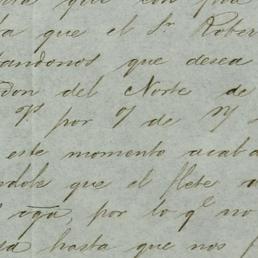 que con
a que el Sr Rober
andonos que desea
Don del Norte de
por de
este momento acaba
ndole que el flete
vga, por lo ql no
sa hasta que nos